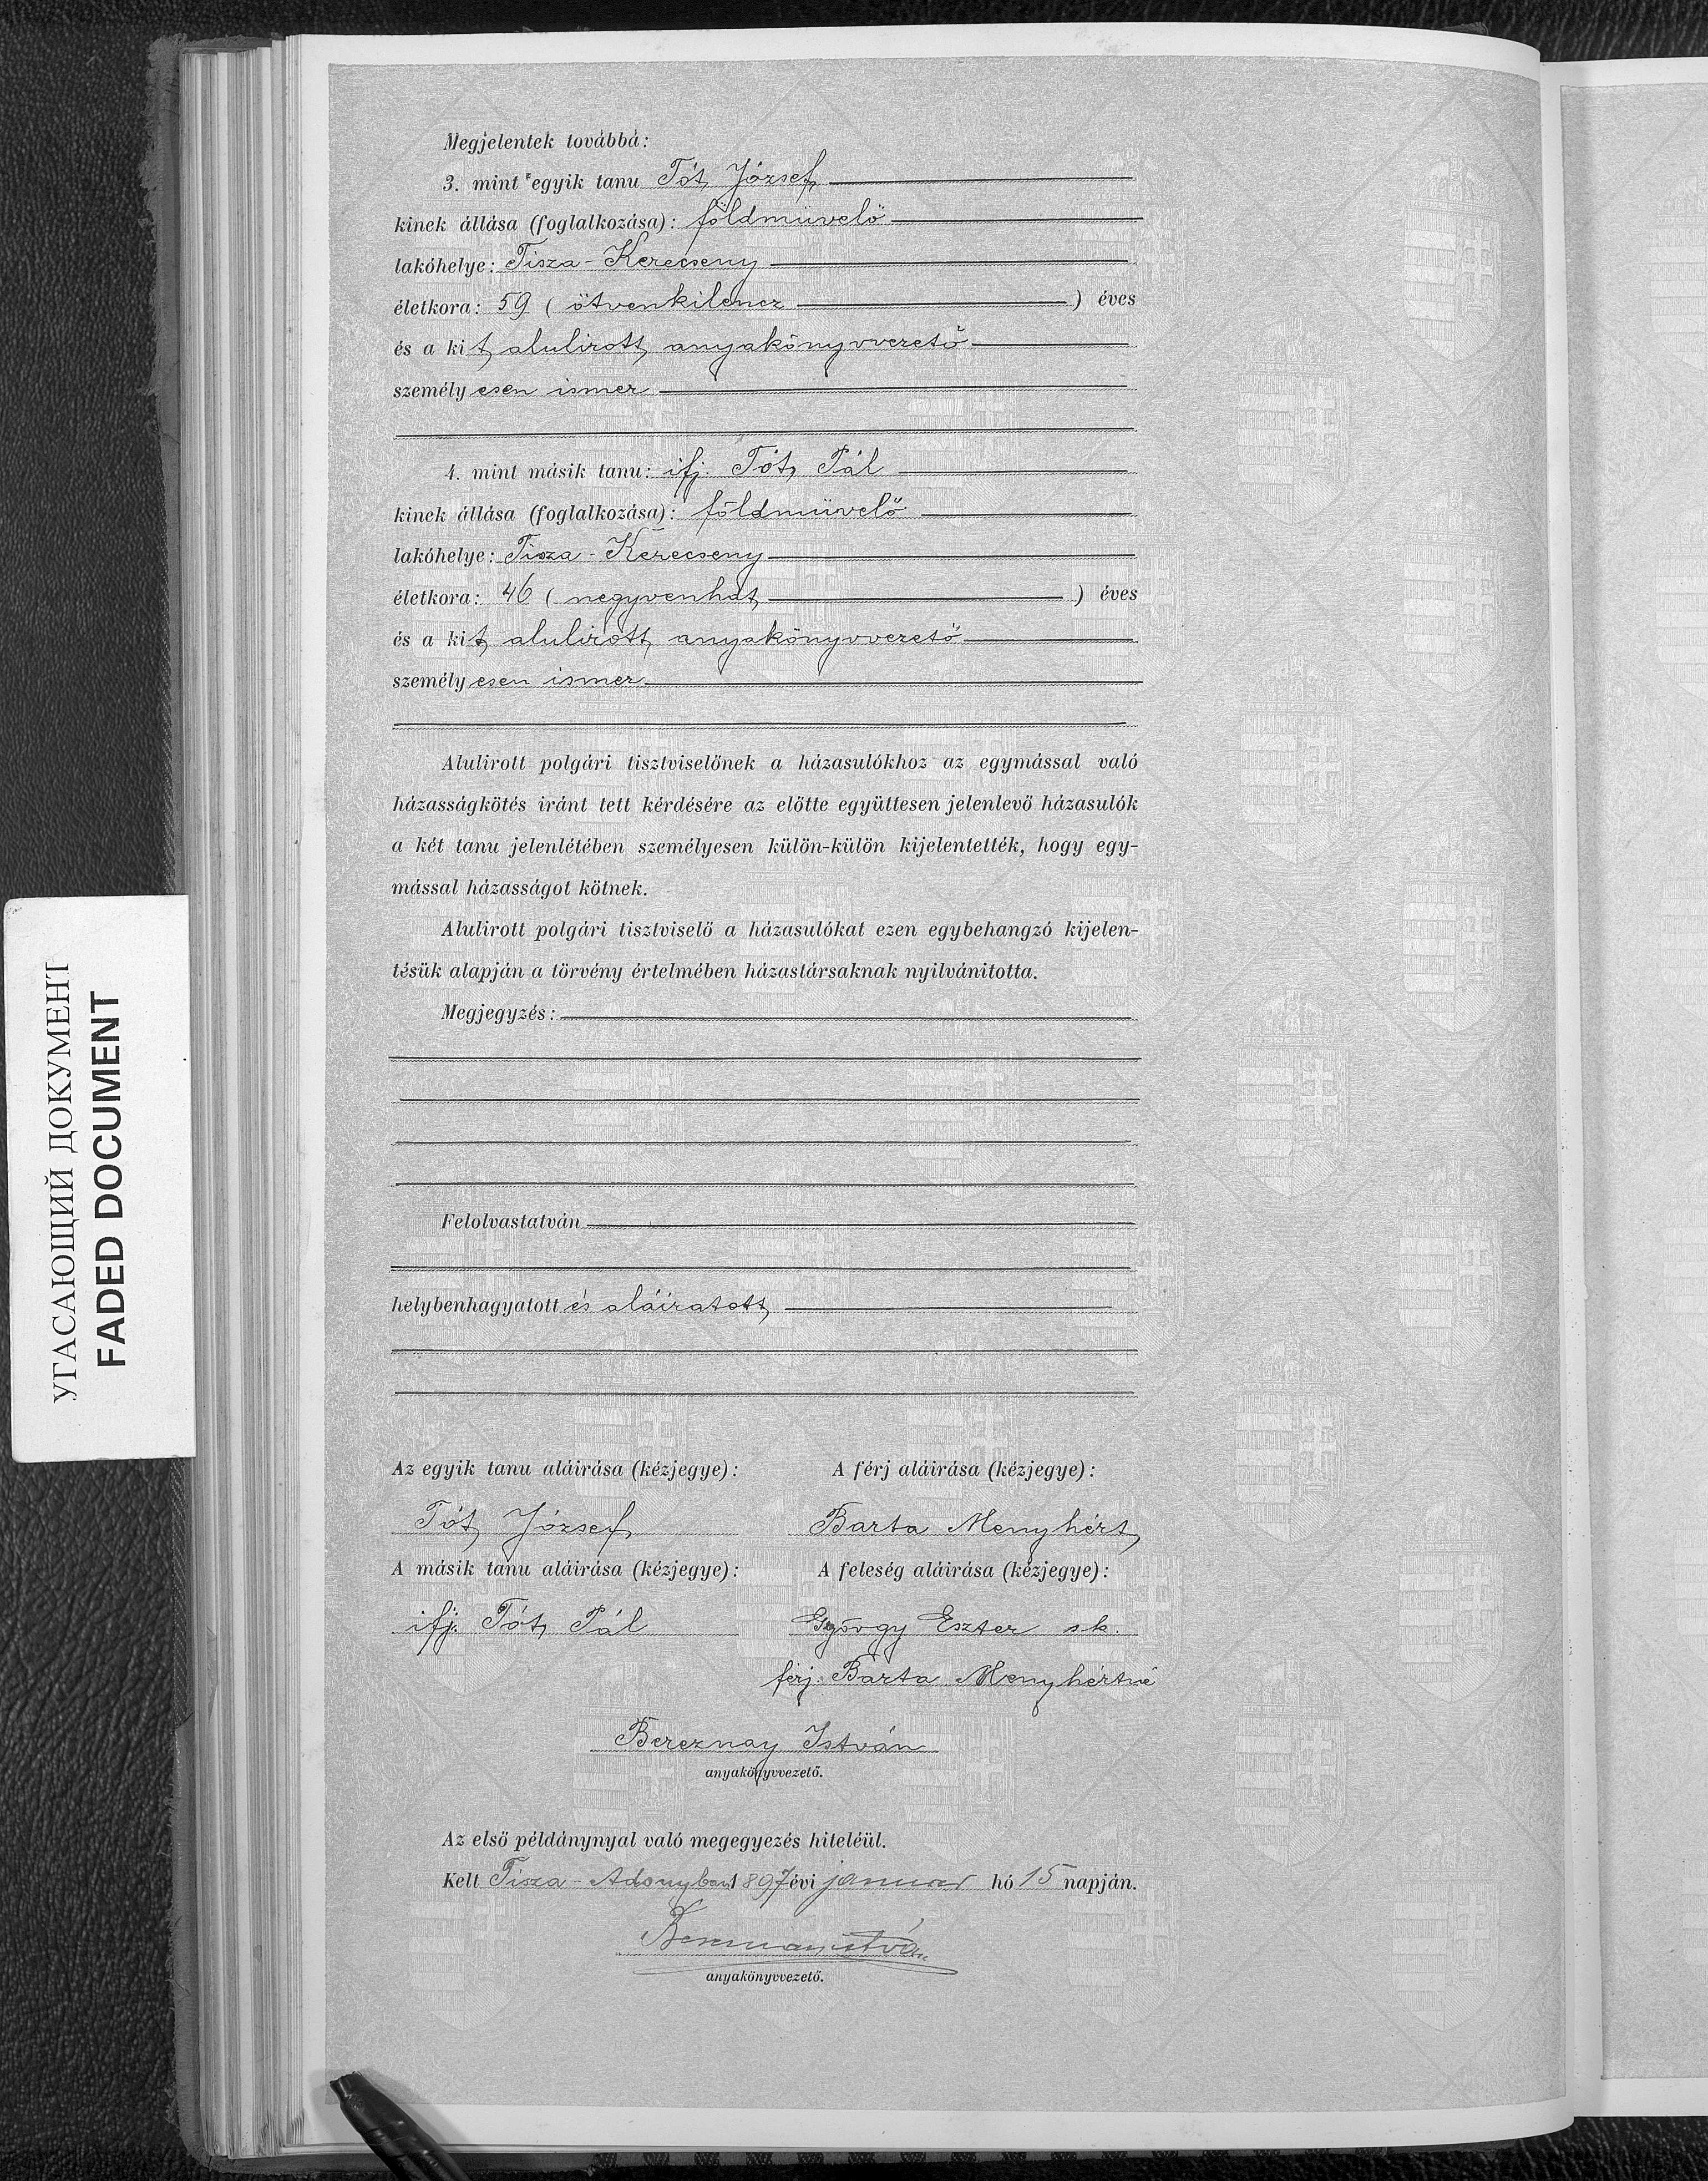 Megjelentek továbbá:
3. mint egyik tanu Tót József
kinek állása (foglalkozása): földmüvelő
lakóhelye: Tisza-Kerecseny
életkora: 59 (ötvenkilencz) éves
és a kit alulirott anyakönyvvezető
személyesen ismer
4. mint másik tanu: ifj. Tót Pál
kinek állása (foglalkozása): földmüvelő
lakóhelye: Tisza-Kerecseny
életkora: 46 (negyvenhat) éves
és a kit alulirott anyakönyvvezető
személyesen ismer
Alulirott polgári tisztviselőnek a házasulókhoz az egymással való
házasságkötés iránt tett kérdésére az előtte együttesen jelenlevő házasulók
a két tanu jelenlétében személyesen külön-külön kijelentették, hogy egy-
mással házasságot kötnek.
Alulirott polgári tisztviselő a házasulókat ezen egybehangzó kijelen-
tésük alapján a törvény értelmében házastársaknak nyilvánitotta.
Megjegyzés:
Felolvastatván
helybenhagyatott és aláiratott
Az egyik tanu aláirása (kézjegye): A férj aláirása (kézjegye):
Tót József Barta Menyhért
A másik tanu aláirása (kézjegye): A feleség aláirása (kézjegye):
ifj. Tót Pál György Eszter sk.
férj. Barta Menyhértné
Bereznay István
anyakönyvvezető.
Az első példánynyal való megegyezés hiteléül.
Kelt Tisza-Adonyban 1897 évi januar hó 15 napján.
Bereznay István
anyakönyvvezető.
УГАСАЮЩИЙ ДОКУМЕНТ
FADED DOCUMENT